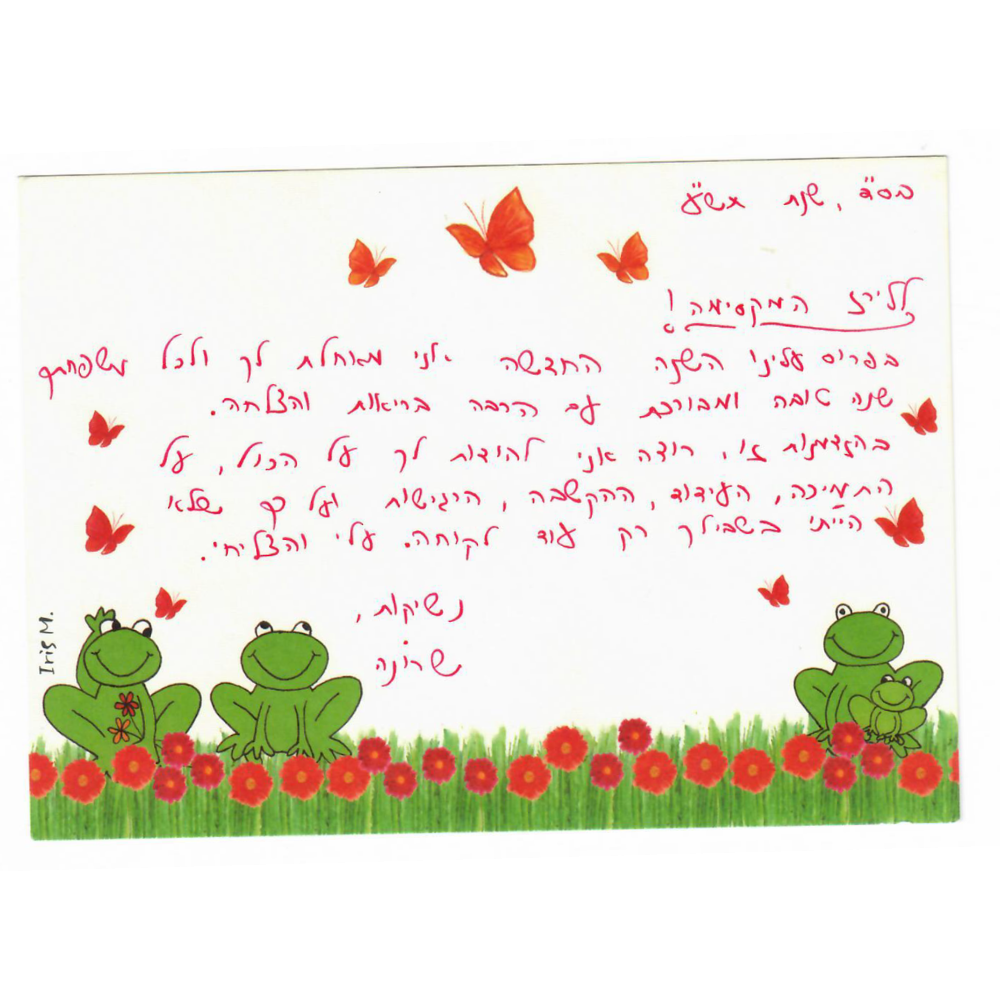 בס"ד, שנת תש"ע
לליז המקסימה!
בפרוס עלינו השנה החדשה אני מאוחלת לך ולכל משפחתך
שנה טובה ומבורכת עם הרבה בריאות והצלחה.
בהזדמנות זו, רוצה אני להודות לך על הכול, על
התמיכה, העידוד, ההקשבה, הרגישות ועל כך שלא
הייתי בשבילך רק עוד לקוחה. עלי והצליחי.
נשיקות,
שרונה
Iris M.